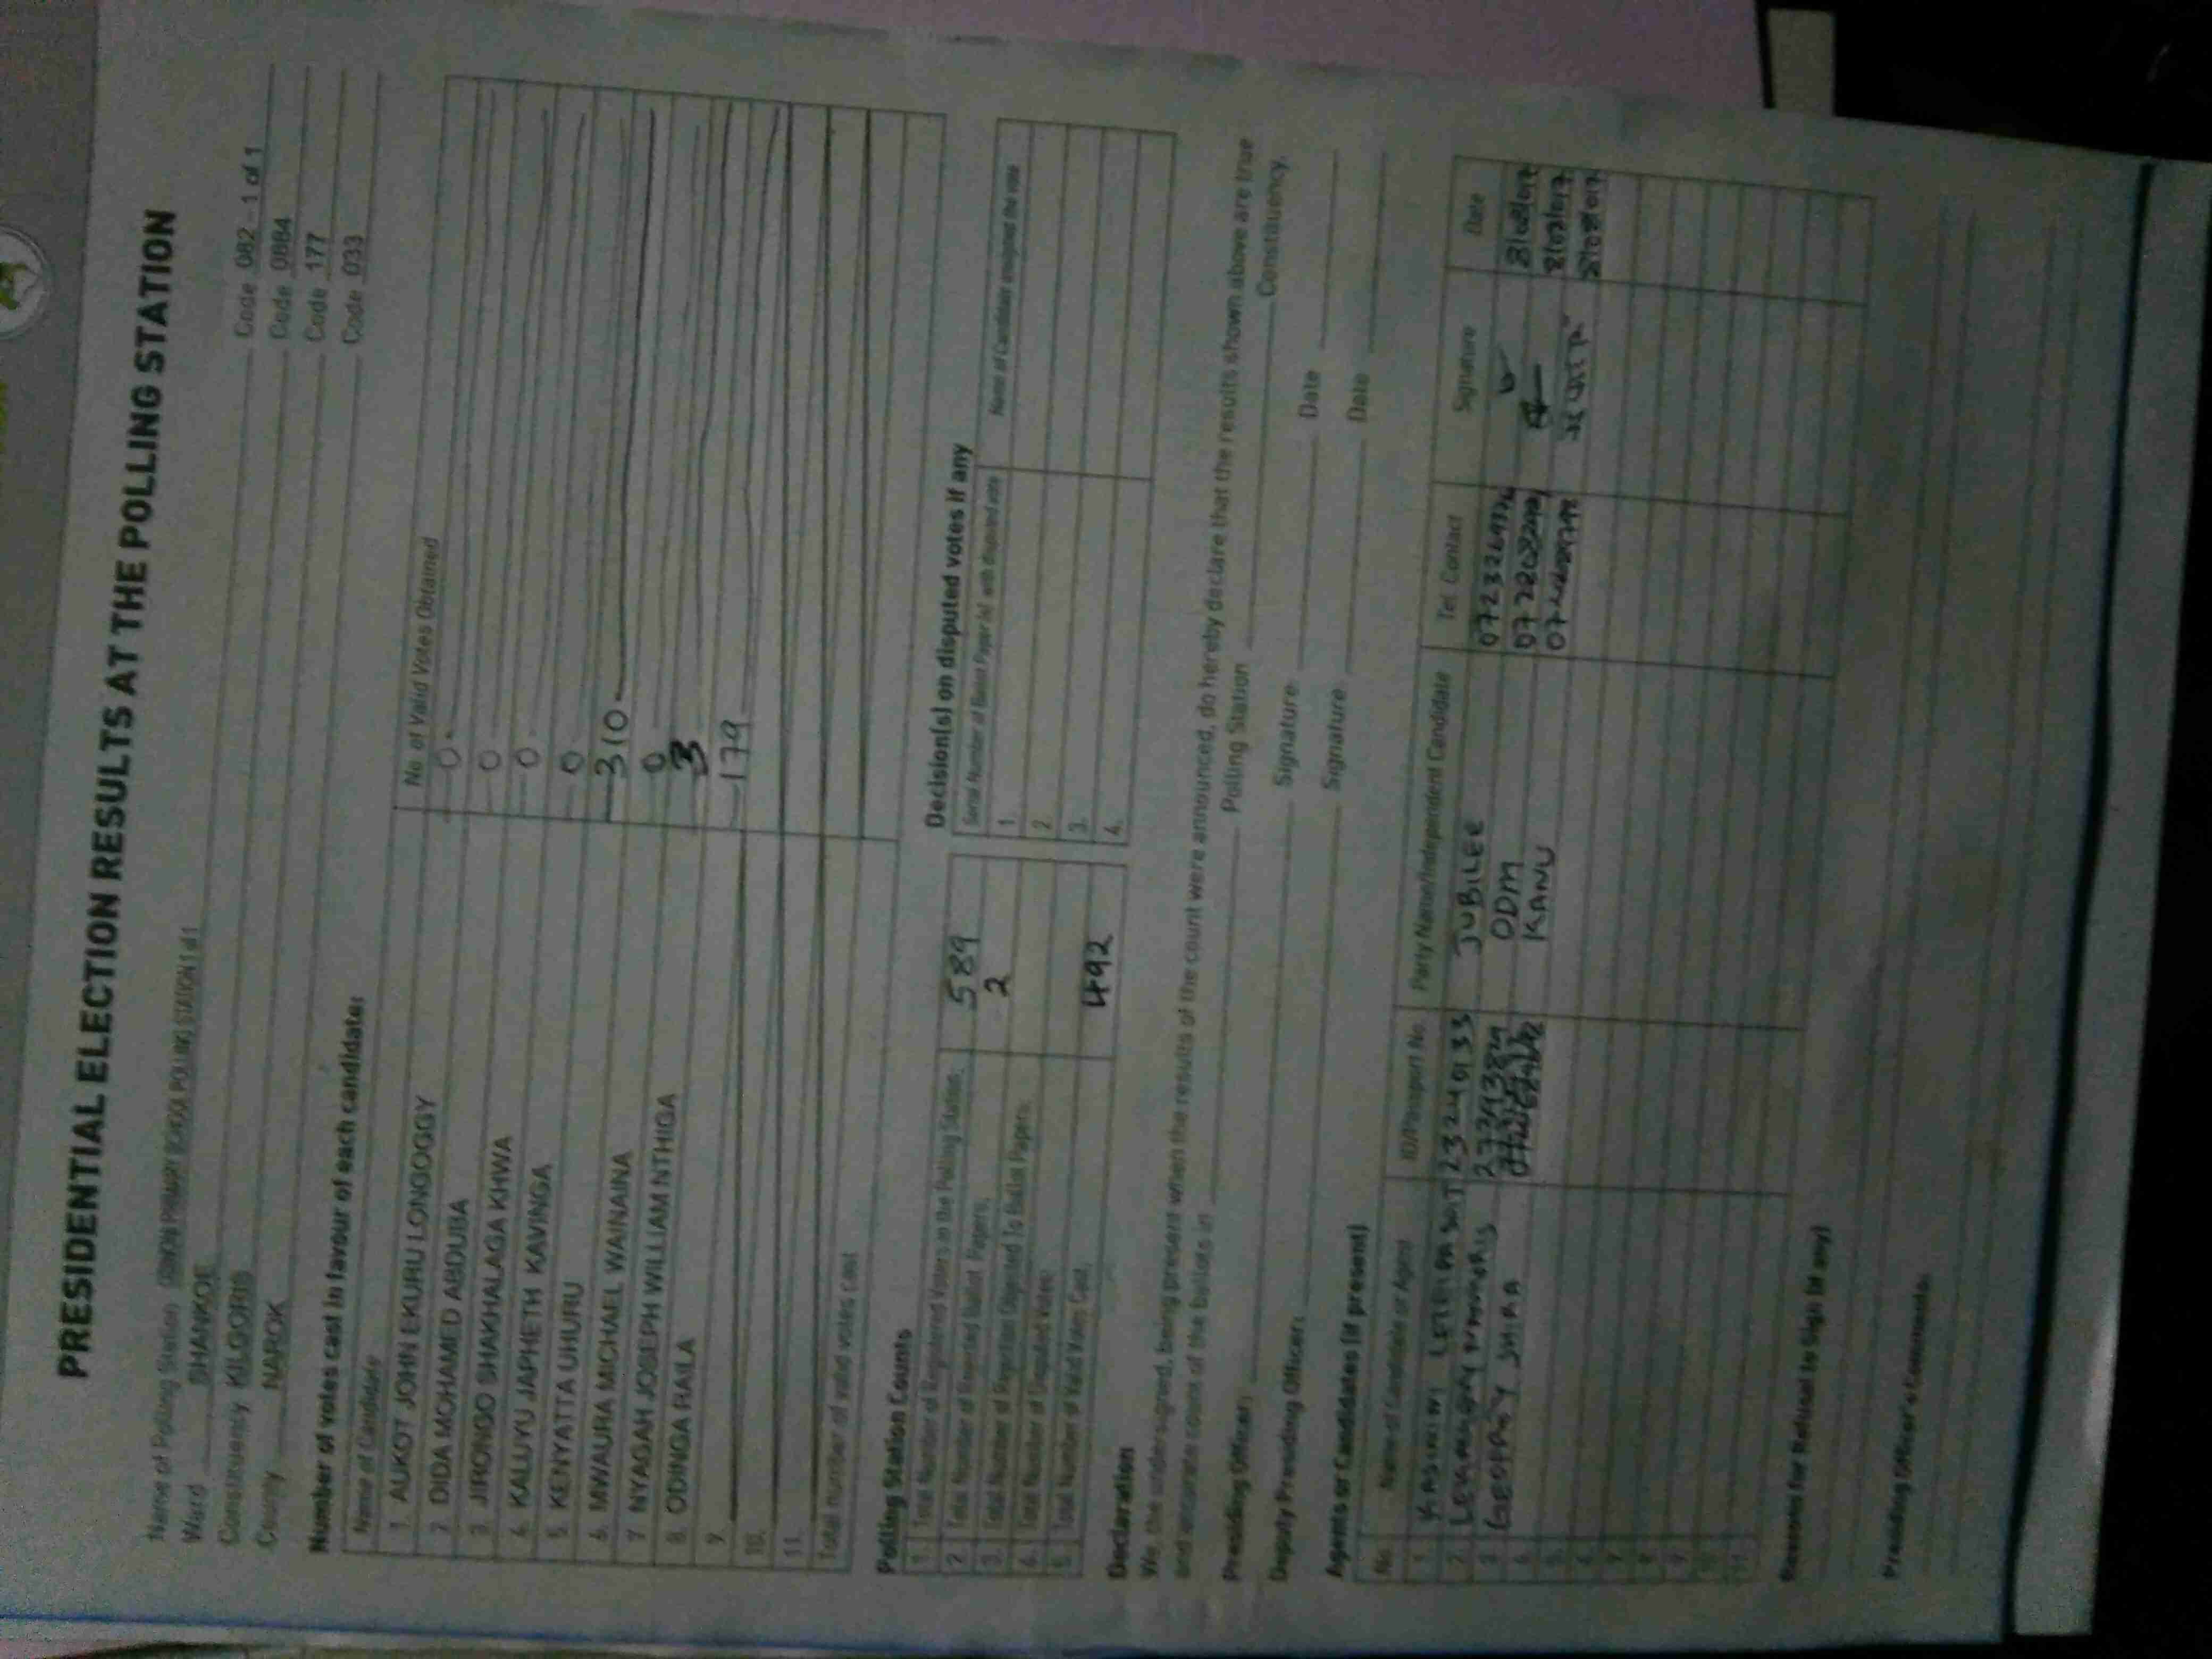 PRESIDENTIAL ELECTION RESULTS AT THE POLLING STATION
Name of Polling Station PRIMARY SCHOOL POLLING STATION 1 of 1 Code 082 - 1 of 1
Ward SHANKOE Code 0884
Constituency KILGORIS Code 177
County NAROK Code 033
Number of votes cast in favour of each candidate:
Name of Candidate No of Valid Votes Obtained
1. AUKOT JOHN EKURU LONGOGGY 0
2. DIDA MOHAMED ABDUBA 0
3. JIRONGO SHAKHALAGA KHWA 0
4. KALUYU JAPHETH KAVINGA 0
5. KENYATTA UHURU 310
6. MWAURA MICHAEL WAINAINA 0
7. NYAGAH JOSEPH WILLIAM NTHIGA 3
8. ODINGA RAILA 179
9.
10.
11.
Total number of valid votes cast
Polling Station Counts
1. Total Number of Registered Voters in the Polling Station 589
2. Total Number of Rejected Ballot Papers 2
3. Total Number of Rejection Objected To Ballot Papers
4. Total Number of Disputed Votes
5. Total Number of Valid Votes Cast 492
Decision(s) on disputed votes if any
Serial Number of Ballot Paper (s) with disputed vote Name of Candidate assigned the vote
1.
2.
3.
4.
Declaration
We, the undersigned, being present when the results of the count were announced, do hereby declare that the results shown above are true
and accurate count of the ballots in Polling Station Constituency.
Presiding Officer: Signature Date
Deputy Presiding Officer: Signature Date
Agents or Candidates (if present)
No. Name of Candidate or Agent ID/Passport No. Party Name/Independent Candidate Tel. Contact Signature Date
1. 23240133 JUBILEE
2. ODM
3. GEOFREY KANU
4.
5.
6.
7.
8.
9.
10.
11.
Reasons for Refusal to Sign (if any)
Presiding Officer's Comments: